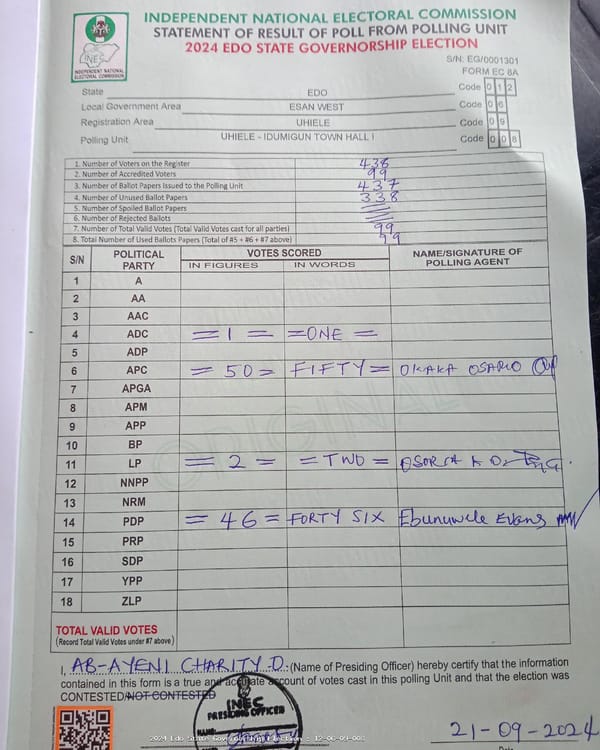 INDEPENDENT NATIONAL ELECTORAL COMMISSION
STATEMENT OF RESULT OF POLL FROM POLLING UNIT
2024 EDO STATE GOVERNORSHIP ELECTION
INEC
INDEPENDENT NATIONAL ELECTORAL COMMISSION
S/N: EG/0001301
FORM EC 8A
State EDO Code 0 1 2
Local Government Area ESAN WEST Code 0 6
Registration Area UHIELE Code 0 9
Polling Unit UHIELE - IDUMIGUN TOWN HALL I Code 0 0 8
1. Number of Voters on the Register 438
2. Number of Accredited Voters 99
3. Number of Ballot Papers Issued to the Polling Unit 437
4. Number of Unused Ballot Papers 338
5. Number of Spoiled Ballot Papers
6. Number of Rejected Ballots
7. Number of Total Valid Votes (Total Valid Votes cast for all parties) 99
8. Total Number of Used Ballots Papers (Total of #5 + #6 + #7 above) 99
S/N POLITICAL PARTY VOTES SCORED NAME/SIGNATURE OF POLLING AGENT
IN FIGURES IN WORDS
1 A
2 AA
3 AAC
4 ADC = 1 = = ONE =
5 ADP
6 APC = 50 = FIFTY = OKAKA
7 APGA
8 APM
9 APP
10 BP
11 LP = 2 = = TWO =
12 NNPP
13 NRM
14 PDP = 46 = FORTY SIX Ebunuwele Evans
15 PRP
16 SDP
17 YPP
18 ZLP
ORIGINAL
TOTAL VALID VOTES
(Record Total Valid Votes under #7 above)
I, AB-AYENI CHARITY .D. (Name of Presiding Officer) hereby certify that the information
contained in this form is a true and accurate account of votes cast in this polling Unit and that the election was
CONTESTED/NOT CONTESTED
INEC
PRESIDING OFFICER
2024 Edo State Governorship Election - 12-06-09-008
21-09-2024
Date